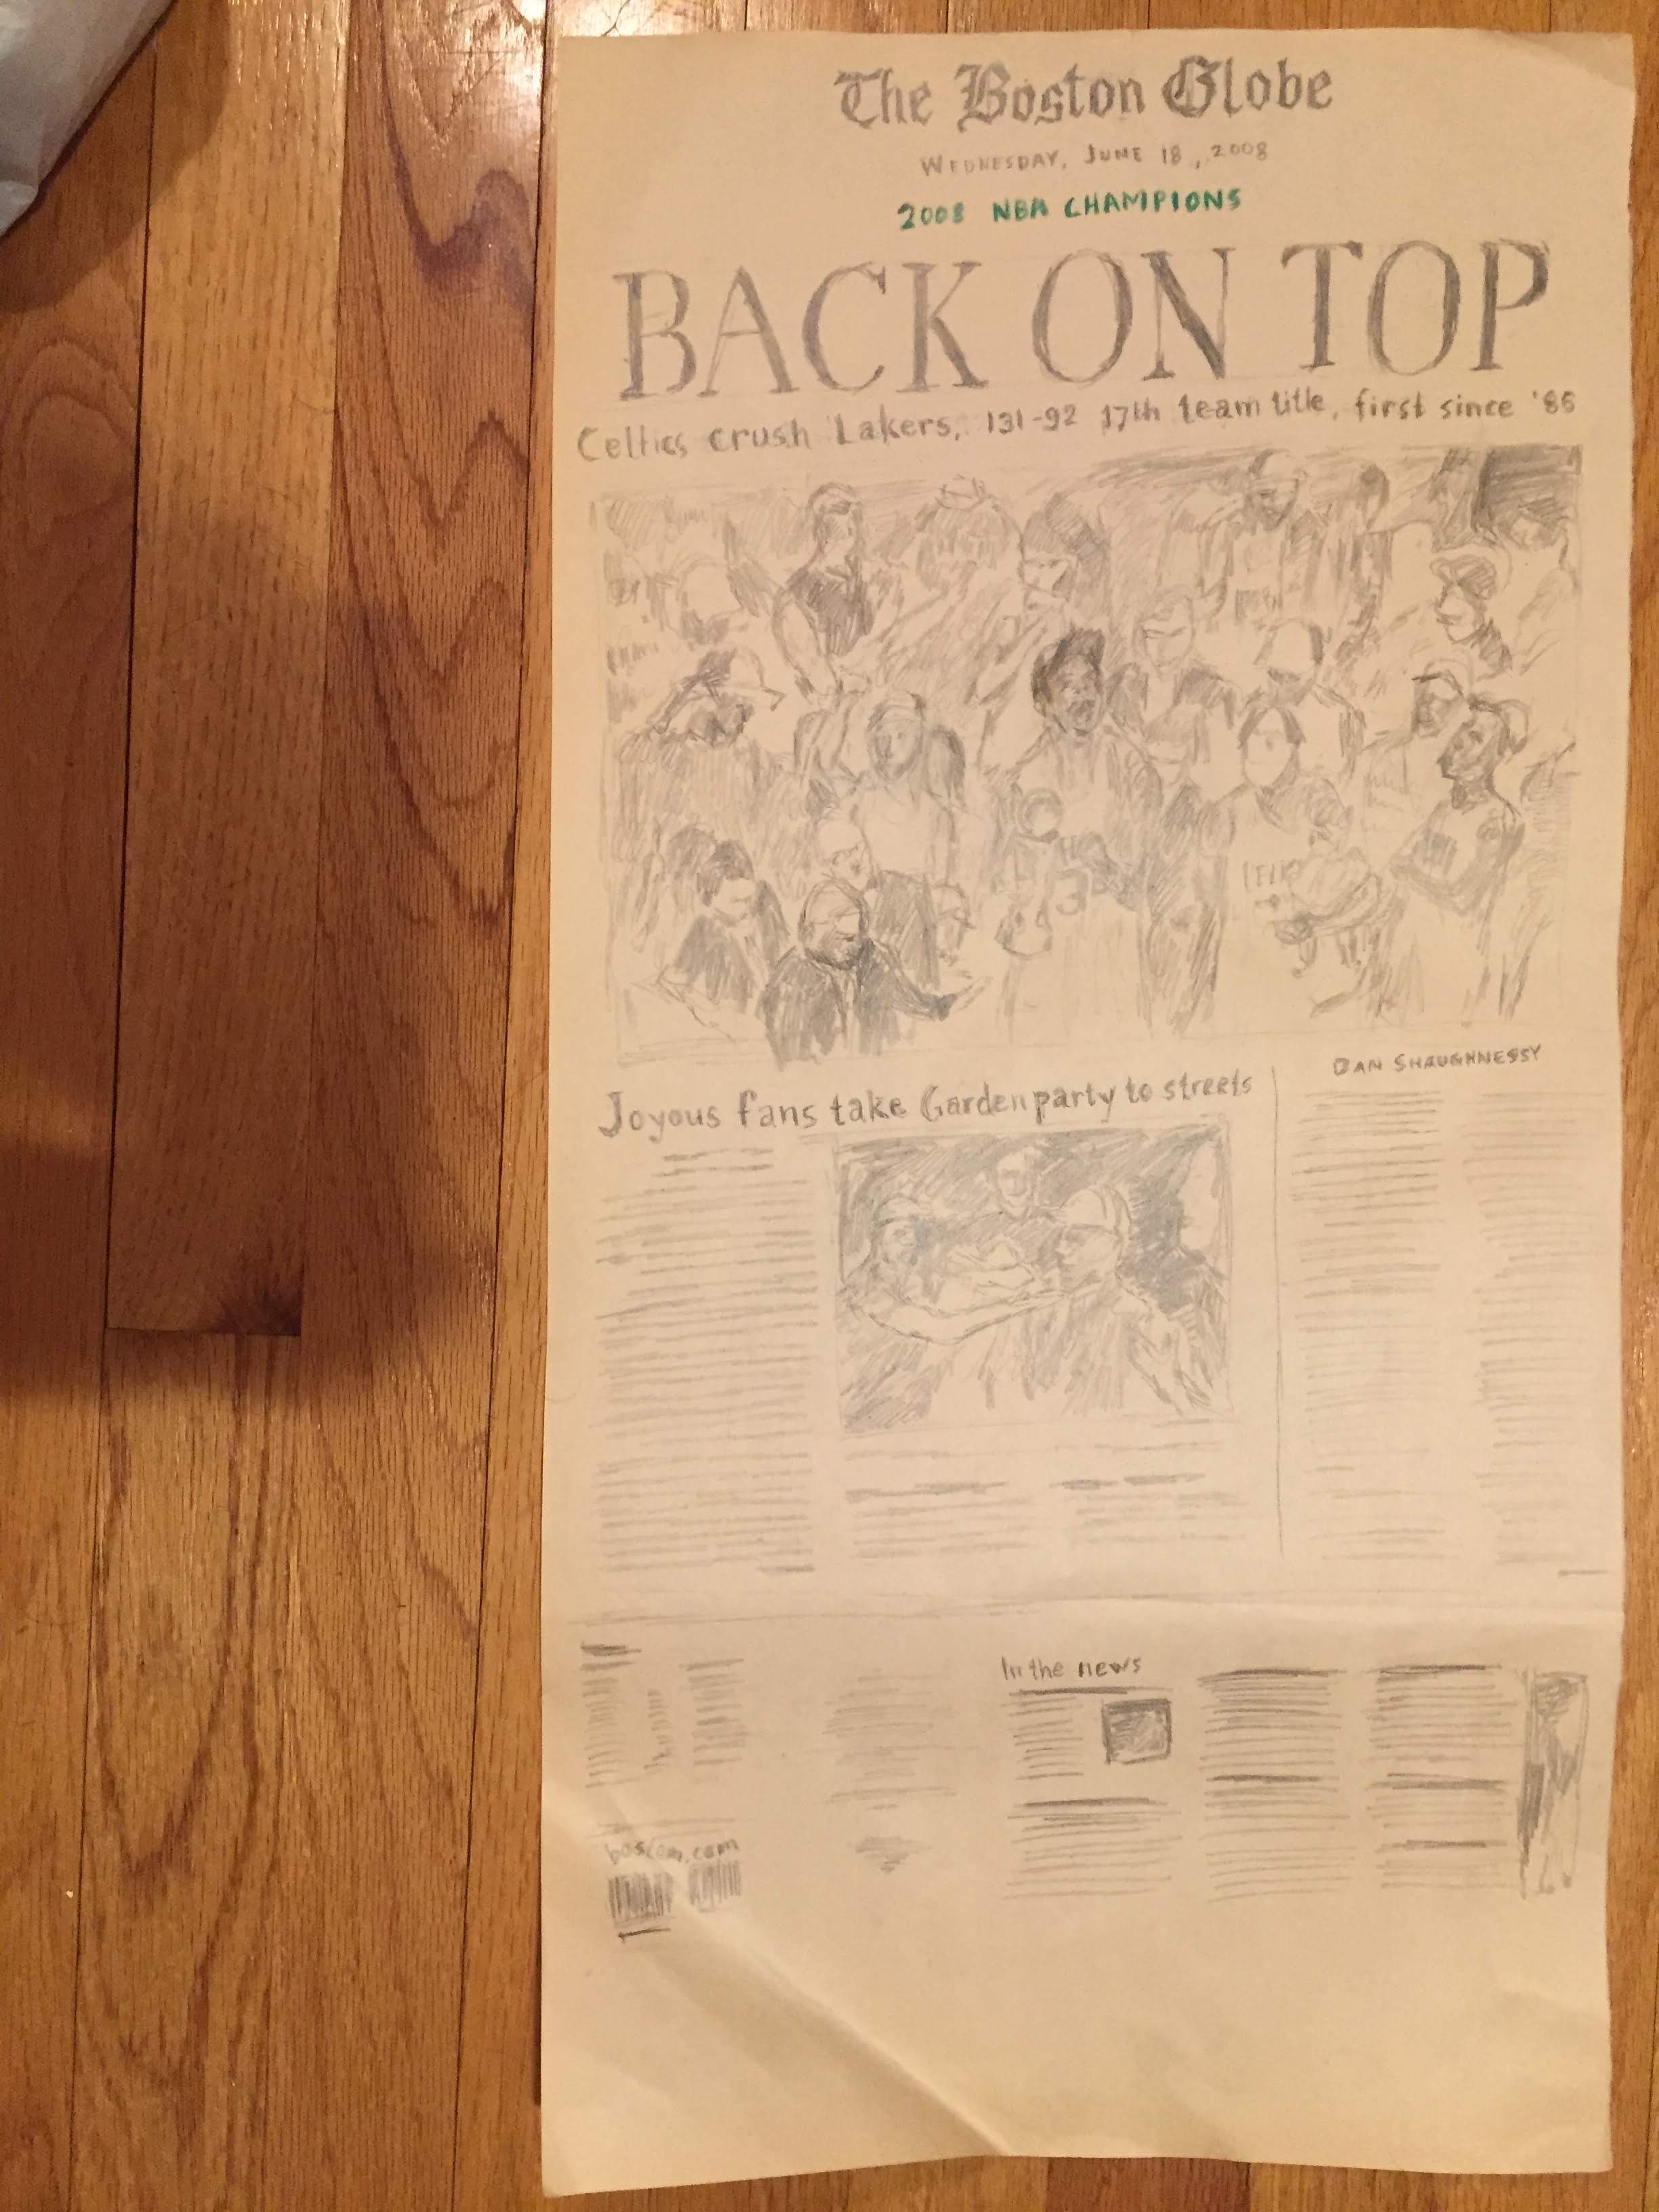 The Boston Globe
WEDNESDAY, JUNE 18, 2008
2008 NBA CHAMPIONS
BACK ON TOP
Celtics crush Lakers, 131-92 17th team title, first since '86
Joyous fans take Garden party to streets
DAN SHAUGHNESSY
In the news